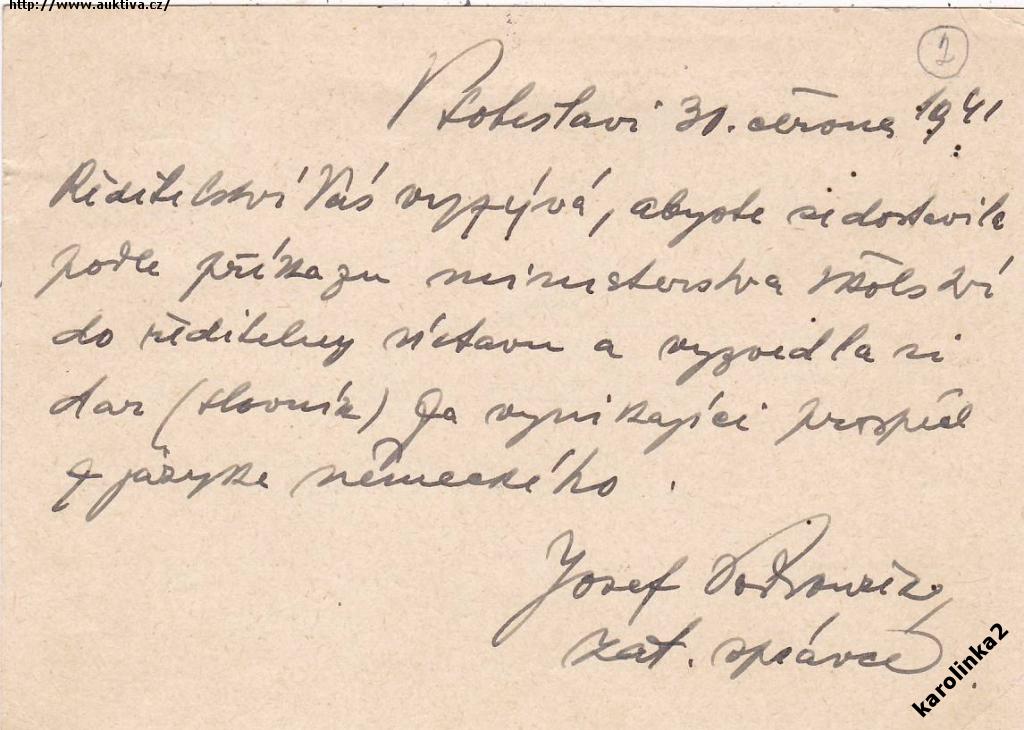 http://www.auktiva.cz/
2
V Soběslavi 30. června 1941
Ředitelství Vás vyzývá, abyste se dostavila
podle příkazu ministerstva školství
do ředitelny ústavu a vyzvedla si
dar (slovník) za vynikající prospěch
z jazyka německého.
Josef
zat. správce
karolinka2